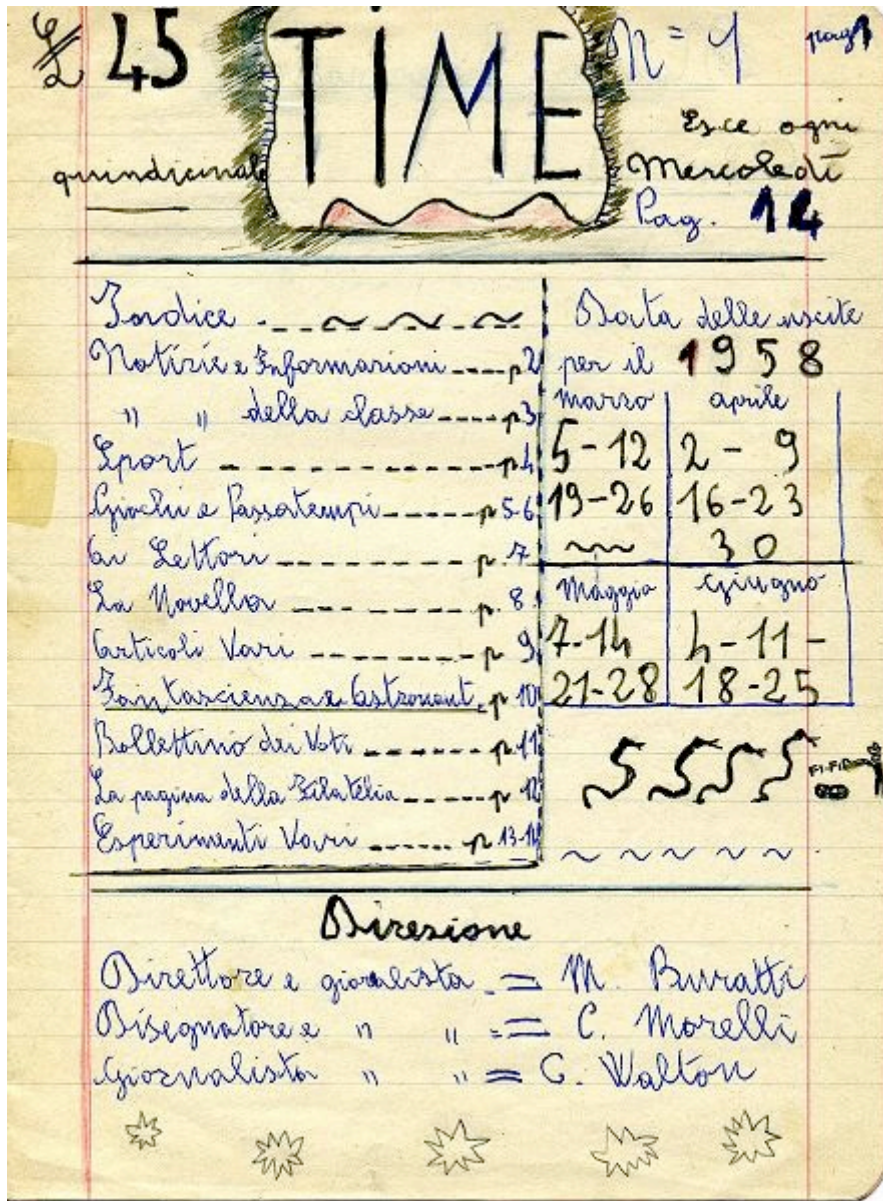 £ 45
TIME
N = 1 pag 1
quindicinale
Esce ogni
Mercoledì
Pag. 14
Indice
Notizie e Informazioni ---- p 2
" " della classe ---- p 3
Sport ---- p 4
Giochi e Passatempi ---- p 5-6
Ai Lettori ---- p. 7
La Novella ---- p. 8
Articoli Vari ---- p 9
Fantascienza e Astronaut. p 10
Bollettino dei Voti ---- p 11
La pagina della Filatelia ---- p 12
Esperimenti Vari ---- p 13-14
Data delle uscite
per il 1958
marzo aprile
5-12 2-9
19-26 16-23
30
Maggio Giugno
7-14 4-11-
21-28 18-25
Direzione
Direttore e giornalista = M. Buratti
Disegnatore e " " = C. Morelli
Giornalista " " = G. Walton